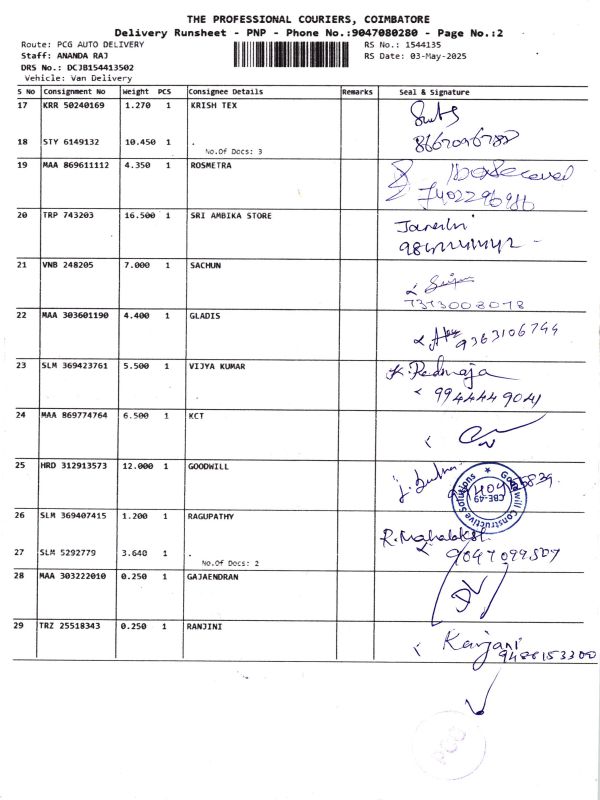 THE PROFESSIONAL COURIERS, COIMBATORE
Delivery Runsheet - PNP - Phone No.:9047080280 - Page No.:2
Route: PCG AUTO DELIVERY RS No.: 1544135
Staff: ANANDA RAJ RS Date: 03-May-2025
DRS No.: DCJB1544413502
Vehicle: Van Delivery
S No Consignment No Weight PCS Consignee Details Remarks Seal & Signature
17 KRR 50240169 1.270 1 KRISH TEX
18 STY 6149132 10.450 1 .
No.Of Docs: 3
19 MAA 869611112 4.350 1 ROSMETRA
7402296986
20 TRP 743203 16.500 1 SRI AMBIKA STORE
21 VNB 248205 7.000 1 SACHUN
7373008078
22 MAA 303601190 4.400 1 GLADIS
9363106744
23 SLM 369423761 5.500 1 VIJYA KUMAR
K. Padmaja
9944449041
24 MAA 869774764 6.500 1 KCT
25 HRD 312913573 12.000 1 GOODWILL
Goodwill Constructive Solutions
CBE-49
26 SLM 369407415 1.200 1 RAGUPATHY
27 SLM 5292779 3.640 1 .
No.Of Docs: 2
9047099507
28 MAA 303222010 0.250 1 GAJAENDRAN
29 TRZ 25518343 0.250 1 RANJINI
9486153300
PCG